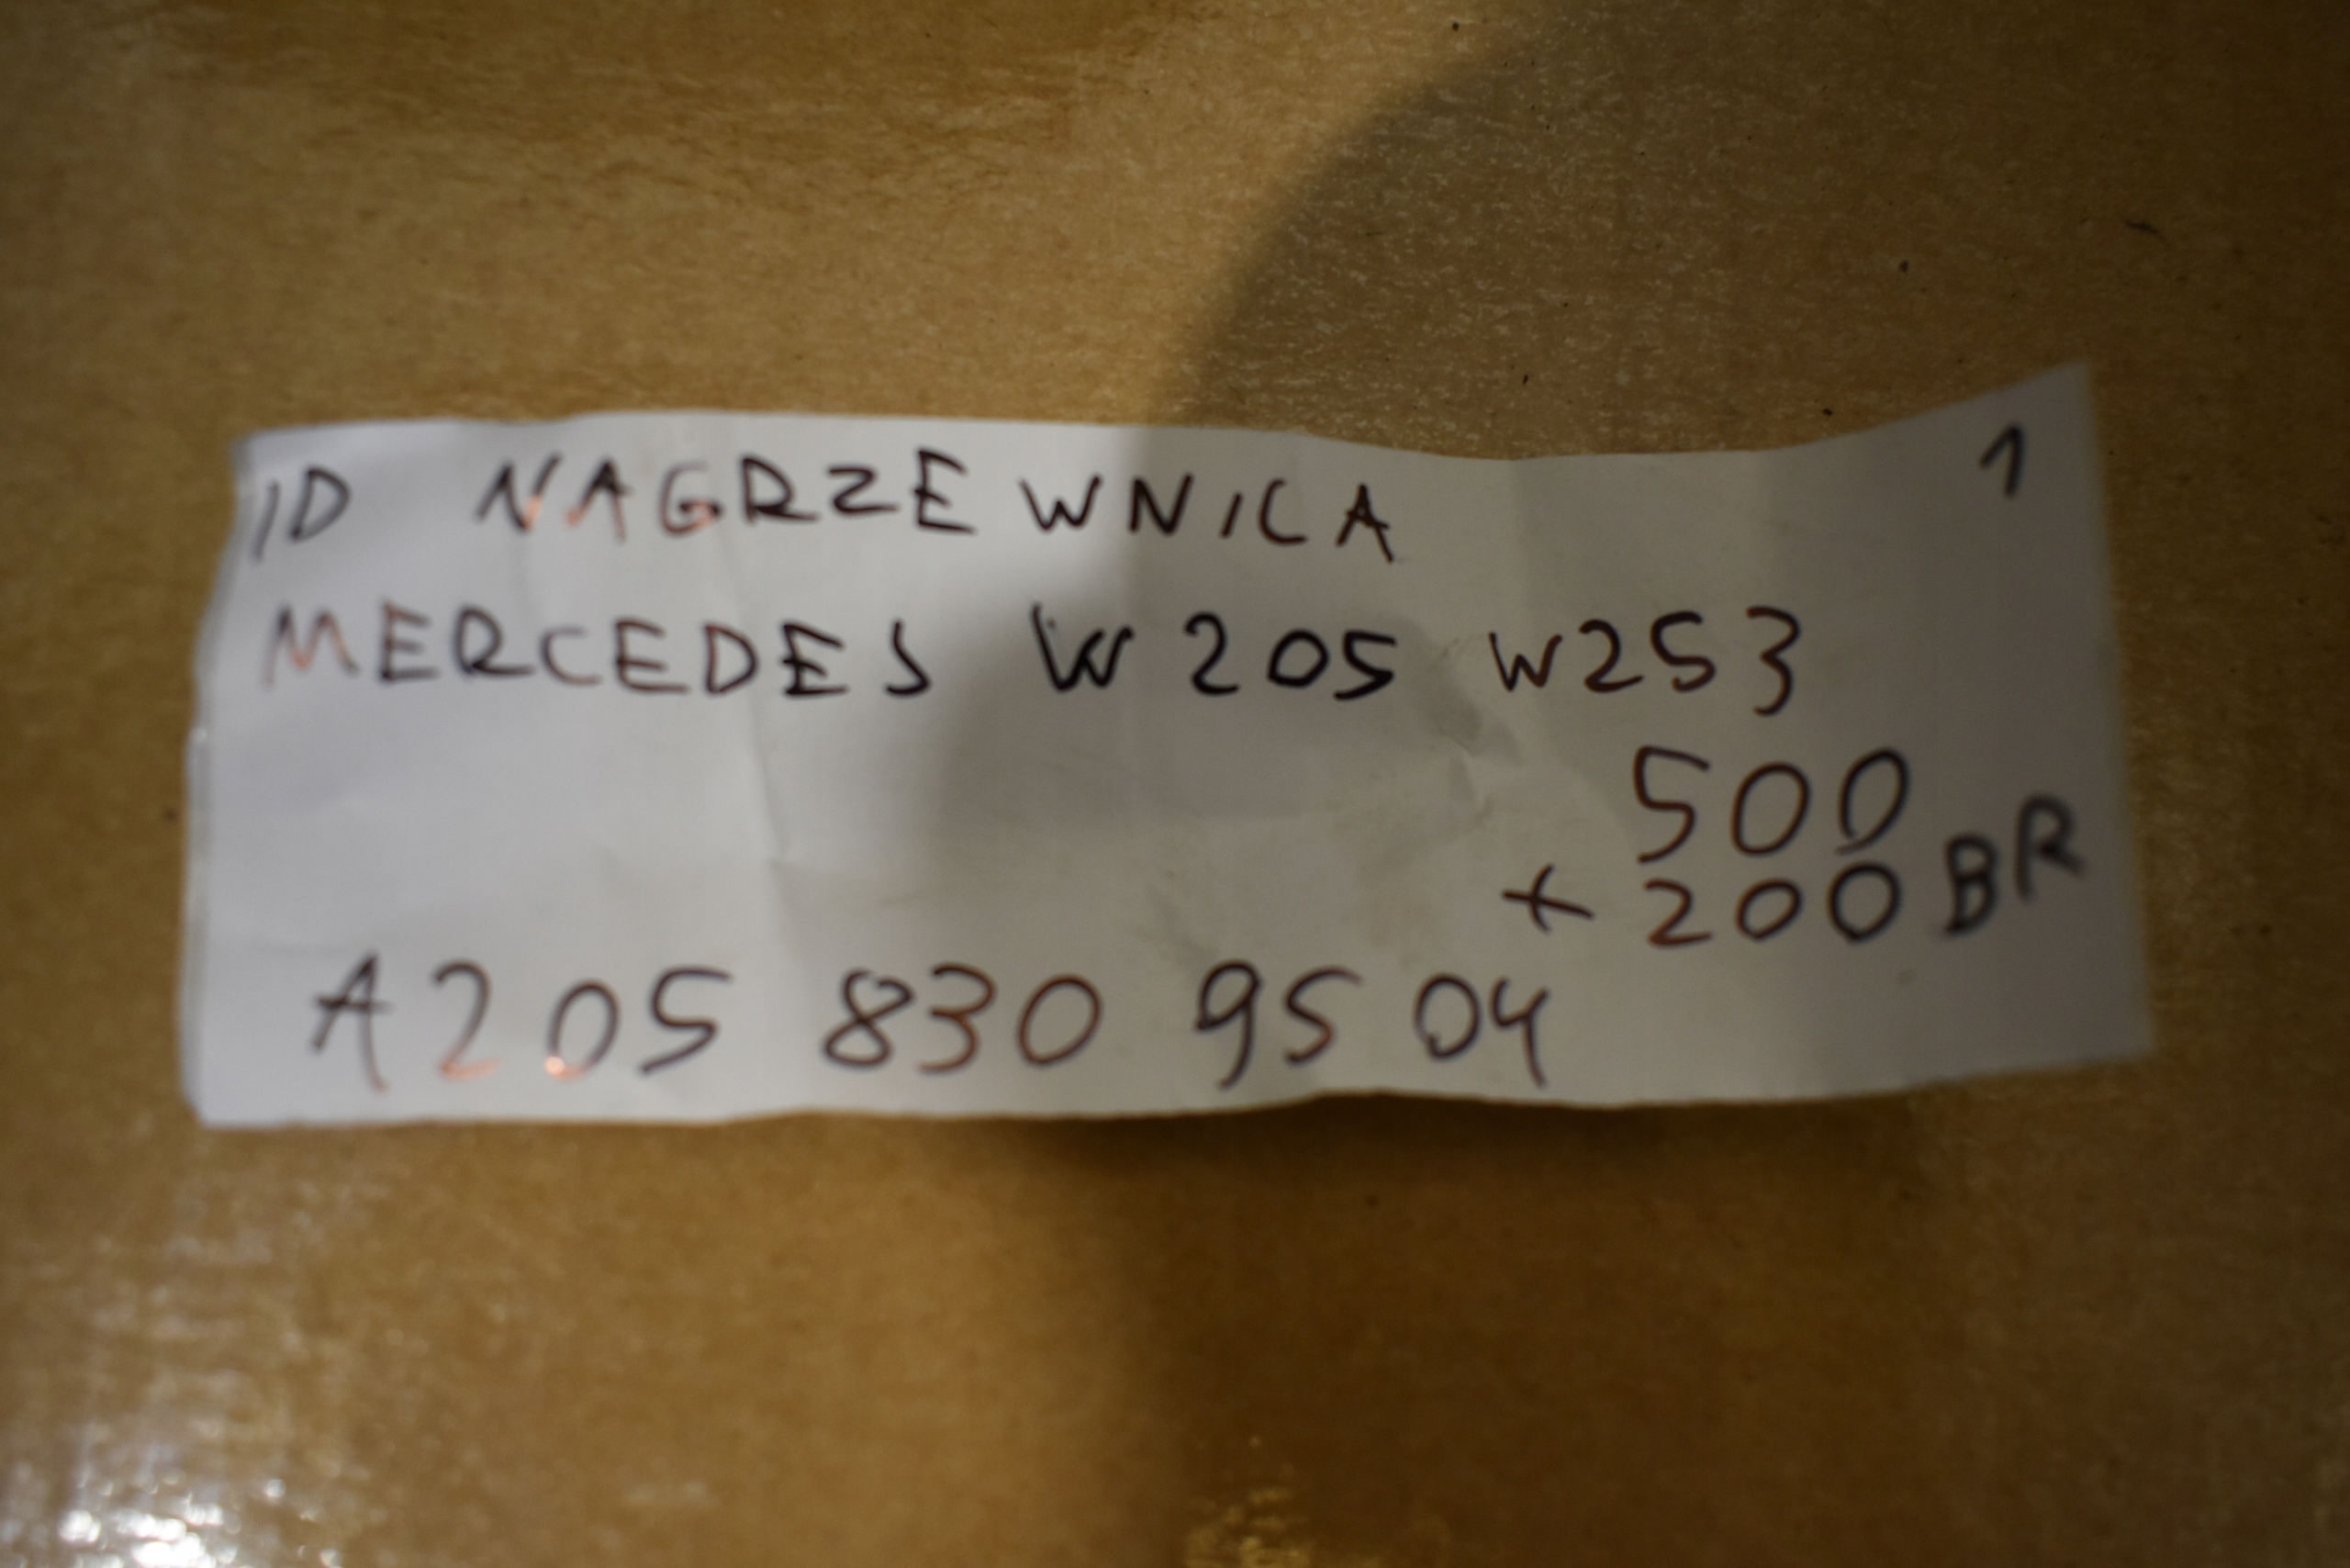 ID NAGRZEWNICA 1
MERCEDES W205 W253
500
+ 200 BR
A205 830 95 04